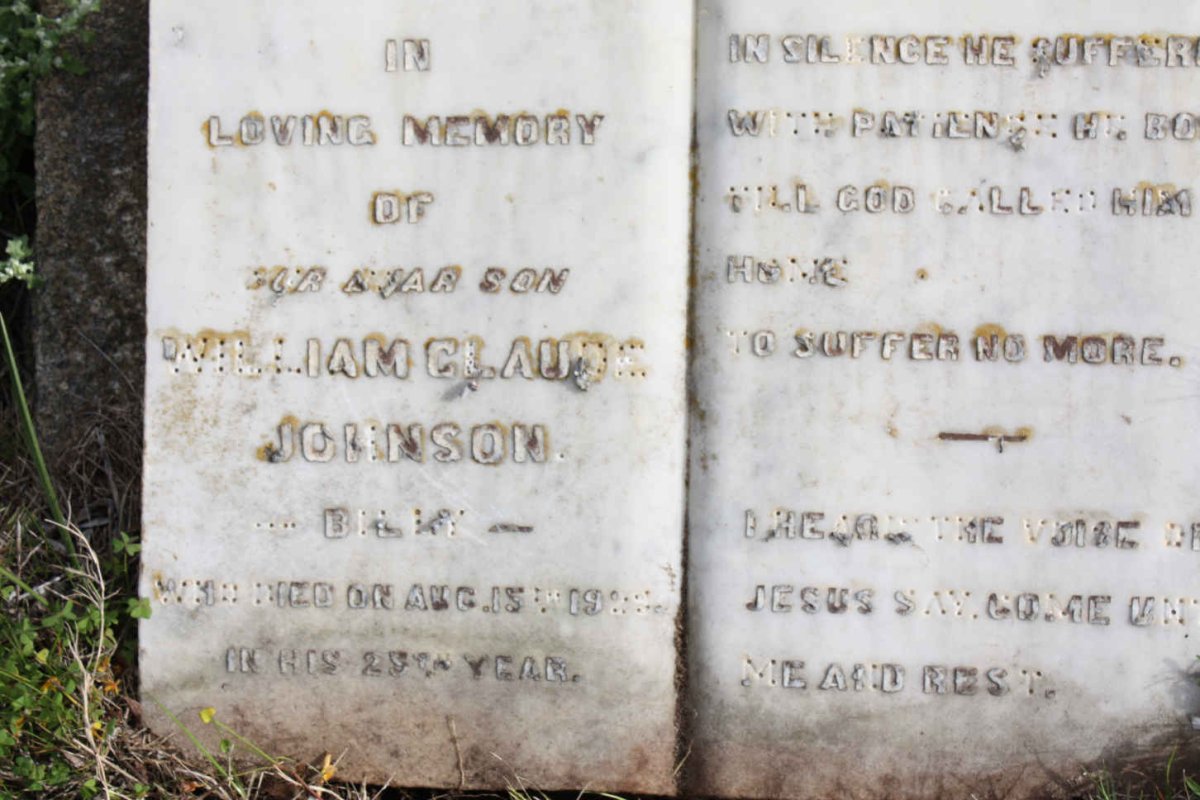 IN
LOVING MEMORY
OF
OUR DEAR SON
WILLIAM CLAUDE
JOHNSON.
— BILLY —
WHO DIED ON AUG. 15TH
IN HIS 25TH YEAR.
IN SILENCE HE SUFFERE
WITH PATIENCE HE BO
TILL GOD CALLED HIM
HOME
TO SUFFER NO MORE.
I HEARD THE VOICE
JESUS SAY, COME UN
ME AND REST.